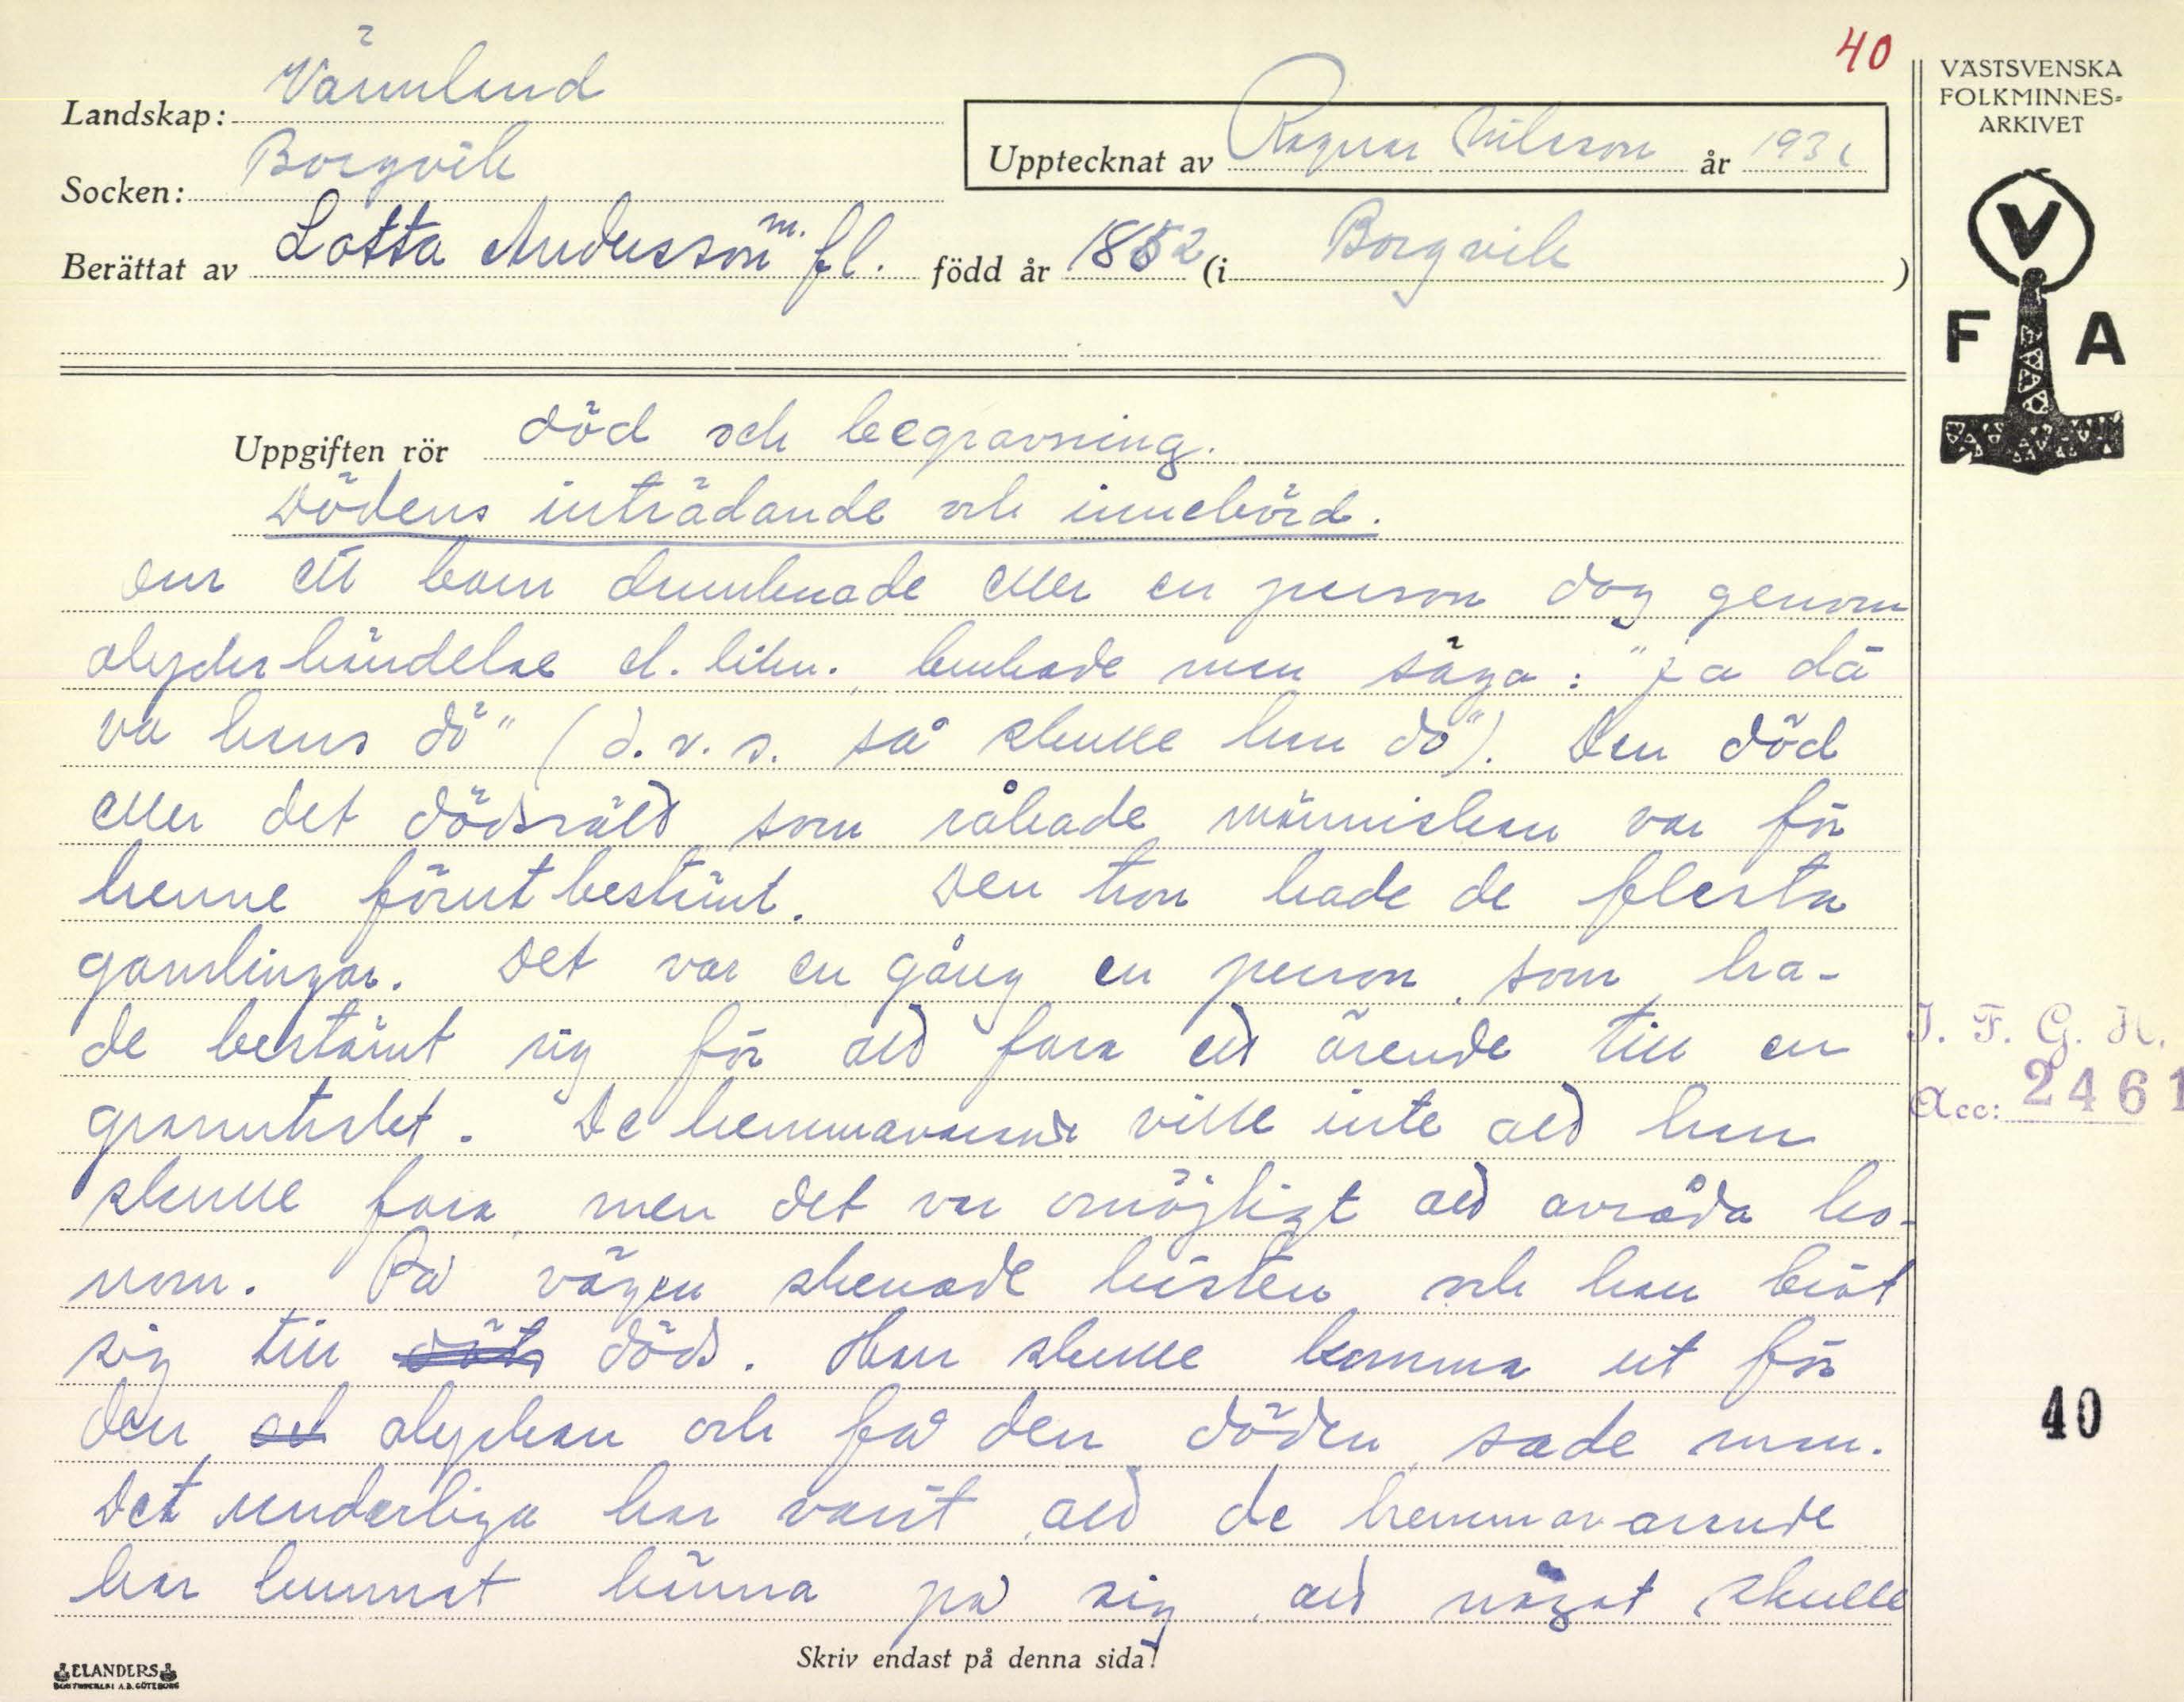 40
Landskap: Värmland
Socken: Borgvik
Upptecknat av Ragnar Nilsson år 1931
Berättat av Lotta Andersson m. fl. född år 1852 (i Borgvik )
VÄSTSVENSKA
FOLKMINNES-
ARKIVET
V
F A
Uppgiften rör död och begravning.
Dödens inträdande och innebörd.
Om ett barn drunknade eller en person dog genom
olyckshändelse el. likn. brukade man säga: "Ja dä
va hans dö" (d.v.s. så skulle han dö"). Den död
eller det dödssätt som råkade människan var för
henne förutbestämt. Den tron hade de flesta
gamlingar. Det var en gång en person, som ha-
de bestämt sig för att fara ett ärende till en
granntrakt. De hemmavarande ville inte att han
skulle fara, men det var omöjligt att avråda ho-
nom. På vägen skenade hästen och han bröt
sig till döds. Han skulle komma ut för
den olyckan och få den döden, sade man.
Det underliga har varit, att de hemmavarande
har kunnat känna på sig, att något skulle
J. F. G. H.
Acc: 2461
40
Skriv endast på denna sida!
ELANDERS
BOKTRYCKERI A.B. GÖTEBORG